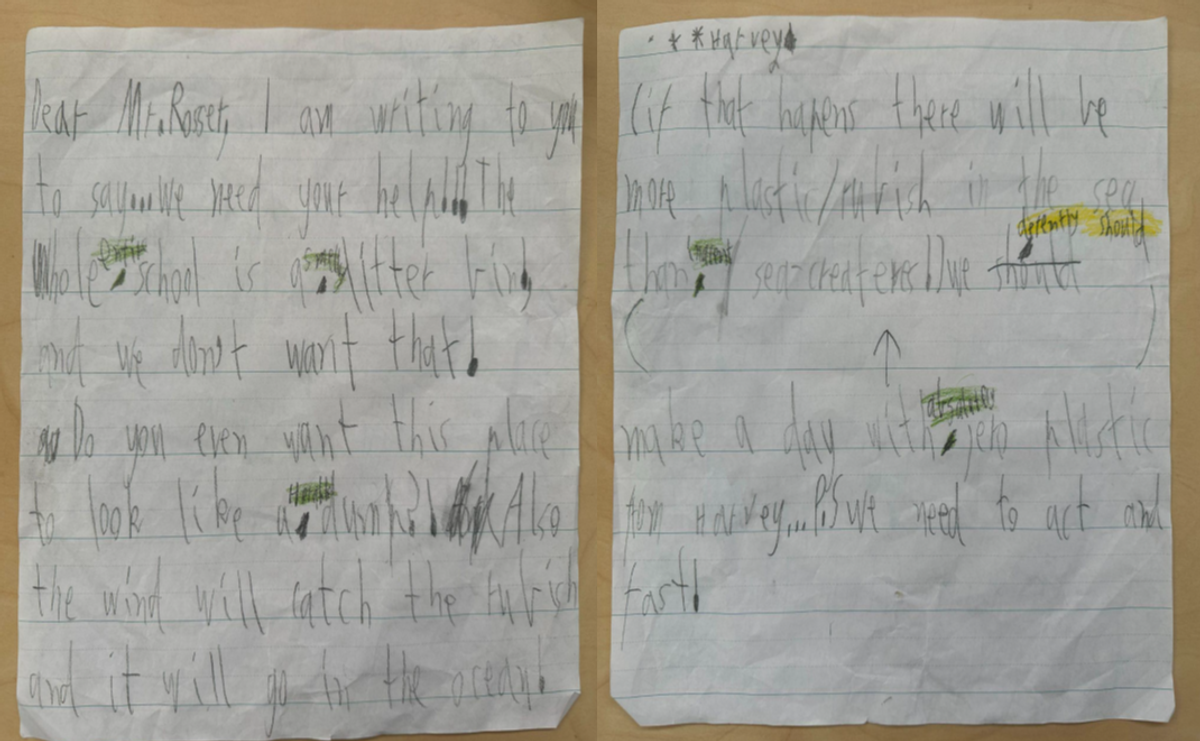 Dear Mr.Rosser, I am writing to you
to say...we need your help!!! The
Whole entire school is a smelly litter bin,
and we don't want that!
Do you even want this place
to look like a dump?! Also
the wind will catch the rubish
and it will go in the ocean!
* * Harvey
(if that hapens there will be
more plastic/rubish in the sea
than sea-createres!)we should defently should
make a day with absolute zero plastic
from Harvey...P.S we need to act and
fast!